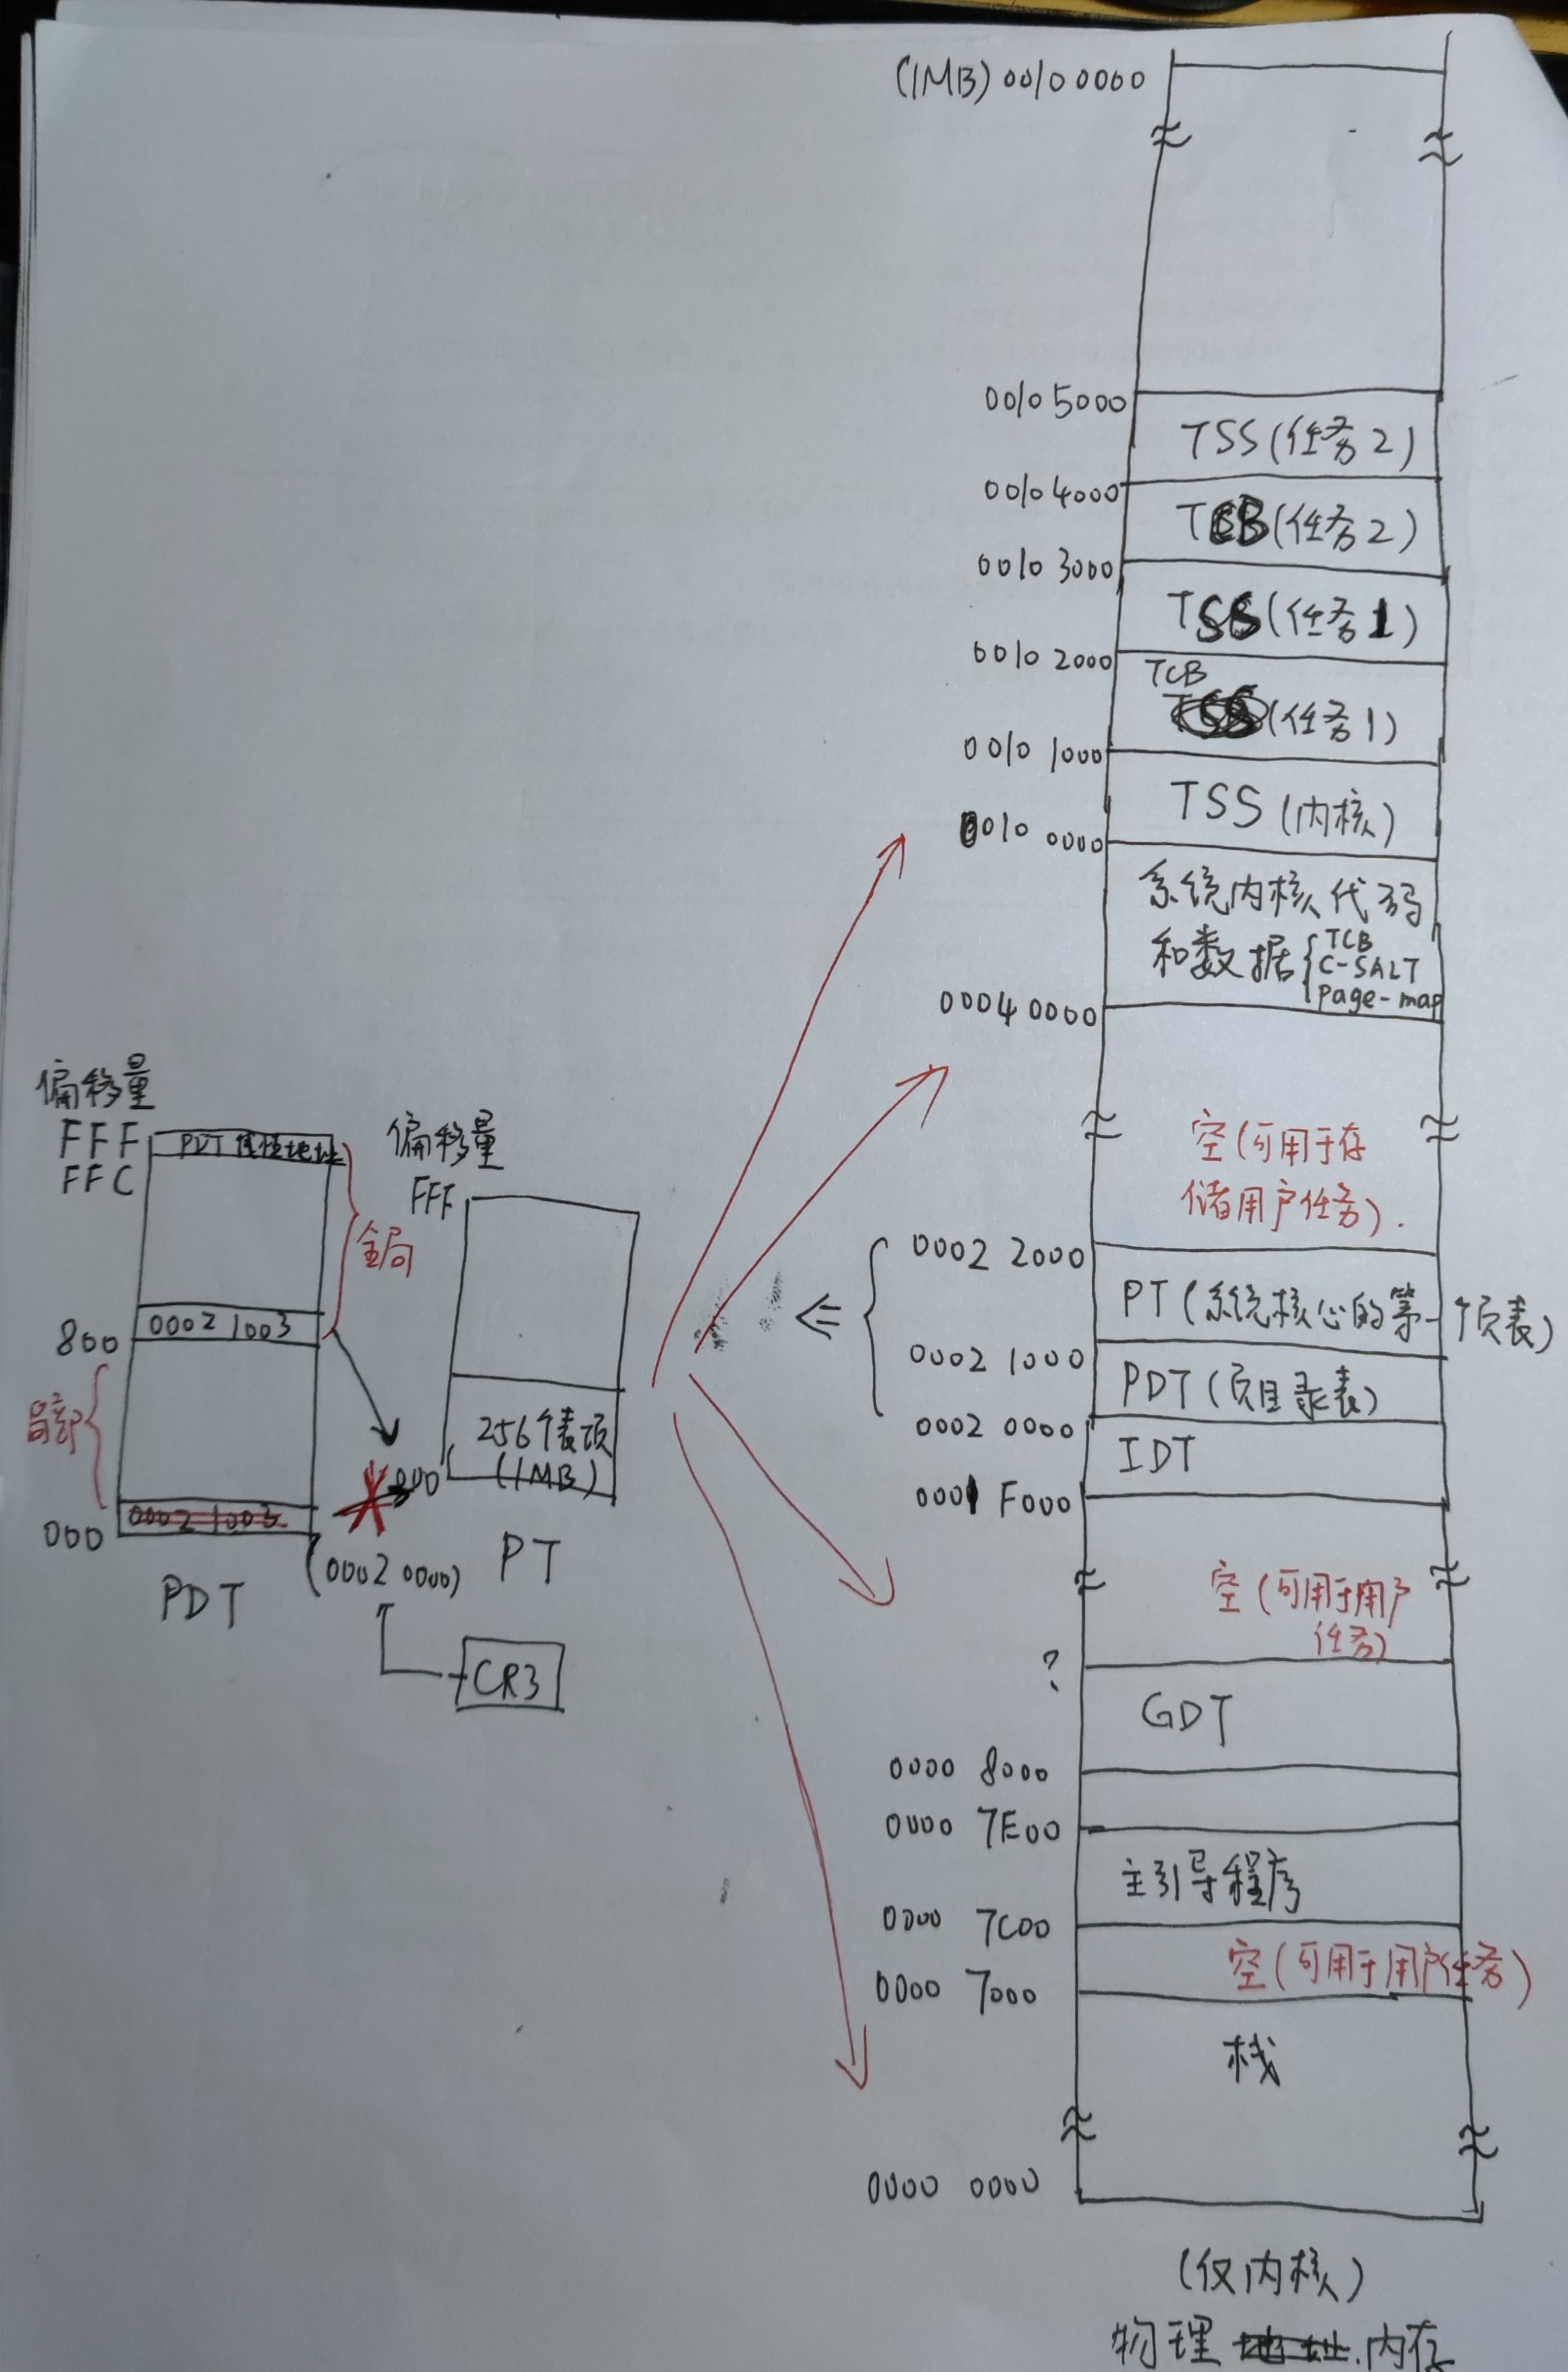 (1MB) 0010 0000
0010 5000
TSS (任务2)
0010 4000
TCB (任务2)
0010 3000
TSS (任务1)
0010 2000
TCB
(任务1)
0010 1000
TSS (内核)
0010 0000
系统内核代码
和数据
TCB
C-SALT
Page-map
0004 0000
空(可用于存
储用户任务).
0002 2000
PT (系统核心的第一个页表)
0002 1000
PDT (页目录表)
0002 0000
IDT
0001 F000
空(可用于用户
任务)
?
GDT
0000 8000
0000 7E00
主引导程序
0000 7C00
空(可用于用户任务)
0000 7000
栈
0000 0000
(仅内核)
物理 地址.内存
偏移量
FFF
PDT 线性地址
FFC
全局
800
0002 1003
局部
000
0002 1003
PDT
(0002 0000)
CR3
偏移量
FFF
256个表项
(1MB)
000
PT